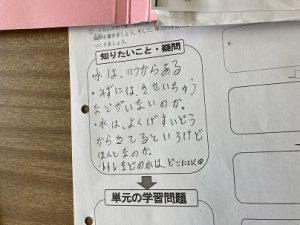 つくりましょう。
知りたいこと・疑問
水は、いつからある
・みずには、きせいちゅう
などがいないのか。
・水は、よくげすいどう
から出てるというけど
ほんとなのか。
・トイレなどの水は、どこにいくの
単元の学習問題